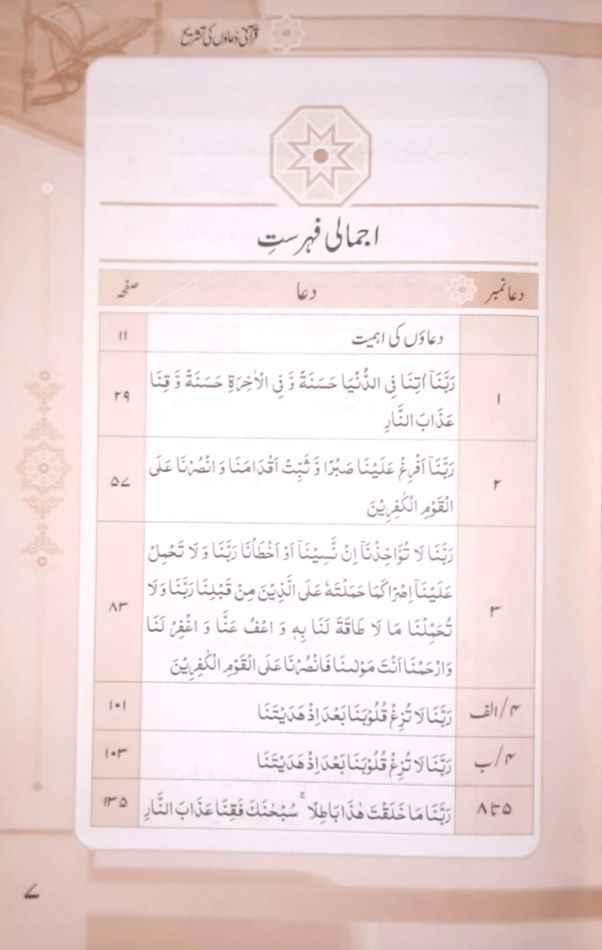 قرآنی دعاؤں کی تشریح
اجمالی فہرست
دعا نمبر دعا صفحہ
دعاؤں کی اہمیت ۱۱
۱ رَبَّنَاۤ اٰتِنَا فِی الدُّنْیَا حَسَنَةً وَّ فِی الْاٰخِرَةِ حَسَنَةً وَّ قِنَا ۲۹
عَذَابَ النَّارِ
۲ رَبَّنَاۤ اَفْرِغْ عَلَیْنَا صَبْرًا وَّ ثَبِّتْ اَقْدَامَنَا وَ انْصُرْنَا عَلَی ۵۷
الْقَوْمِ الْكٰفِرِیْنَ
۳ رَبَّنَا لَا تُؤَاخِذْنَاۤ اِنْ نَّسِیْنَاۤ اَوْ اَخْطَاْنَا رَبَّنَا وَ لَا تَحْمِلْ ۸۳
عَلَیْنَاۤ اِصْرًا كَمَا حَمَلْتَهٗ عَلَی الَّذِیْنَ مِنْ قَبْلِنَا رَبَّنَا وَ لَا
تُحَمِّلْنَا مَا لَا طَاقَةَ لَنَا بِهٖ وَ اعْفُ عَنَّا وَ اغْفِرْ لَنَا
وَارْحَمْنَا اَنْتَ مَوْلٰىنَا فَانْصُرْنَا عَلَی الْقَوْمِ الْكٰفِرِیْنَ
۴/الف رَبَّنَا لَا تُزِغْ قُلُوْبَنَا بَعْدَ اِذْ هَدَیْتَنَا ۱۰۱
۴/ب رَبَّنَا لَا تُزِغْ قُلُوْبَنَا بَعْدَ اِذْ هَدَیْتَنَا ۱۰۳
۵تا۸ رَبَّنَا مَا خَلَقْتَ هٰذَا بَاطِلًا ۚ سُبْحٰنَكَ فَقِنَا عَذَابَ النَّارِ ۱۳۵
۷